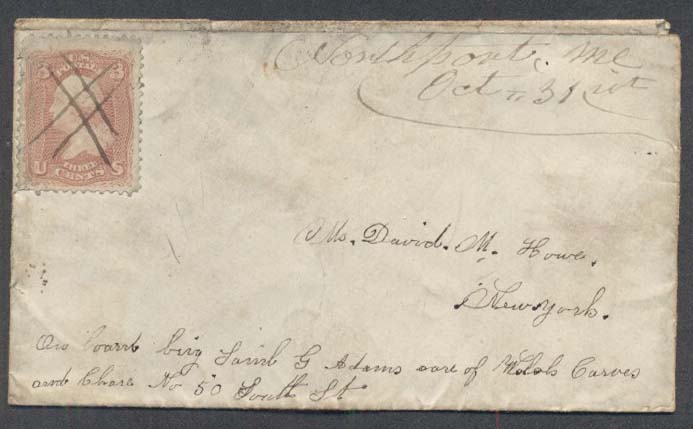 Northport, Me
Oct 31 st
3 U.S. 3
POSTAL
U THREE S
CENTS
Mr. David. M. Howe.
New york.
On board brig G Adams care of Carver
and Chase No 50 South St